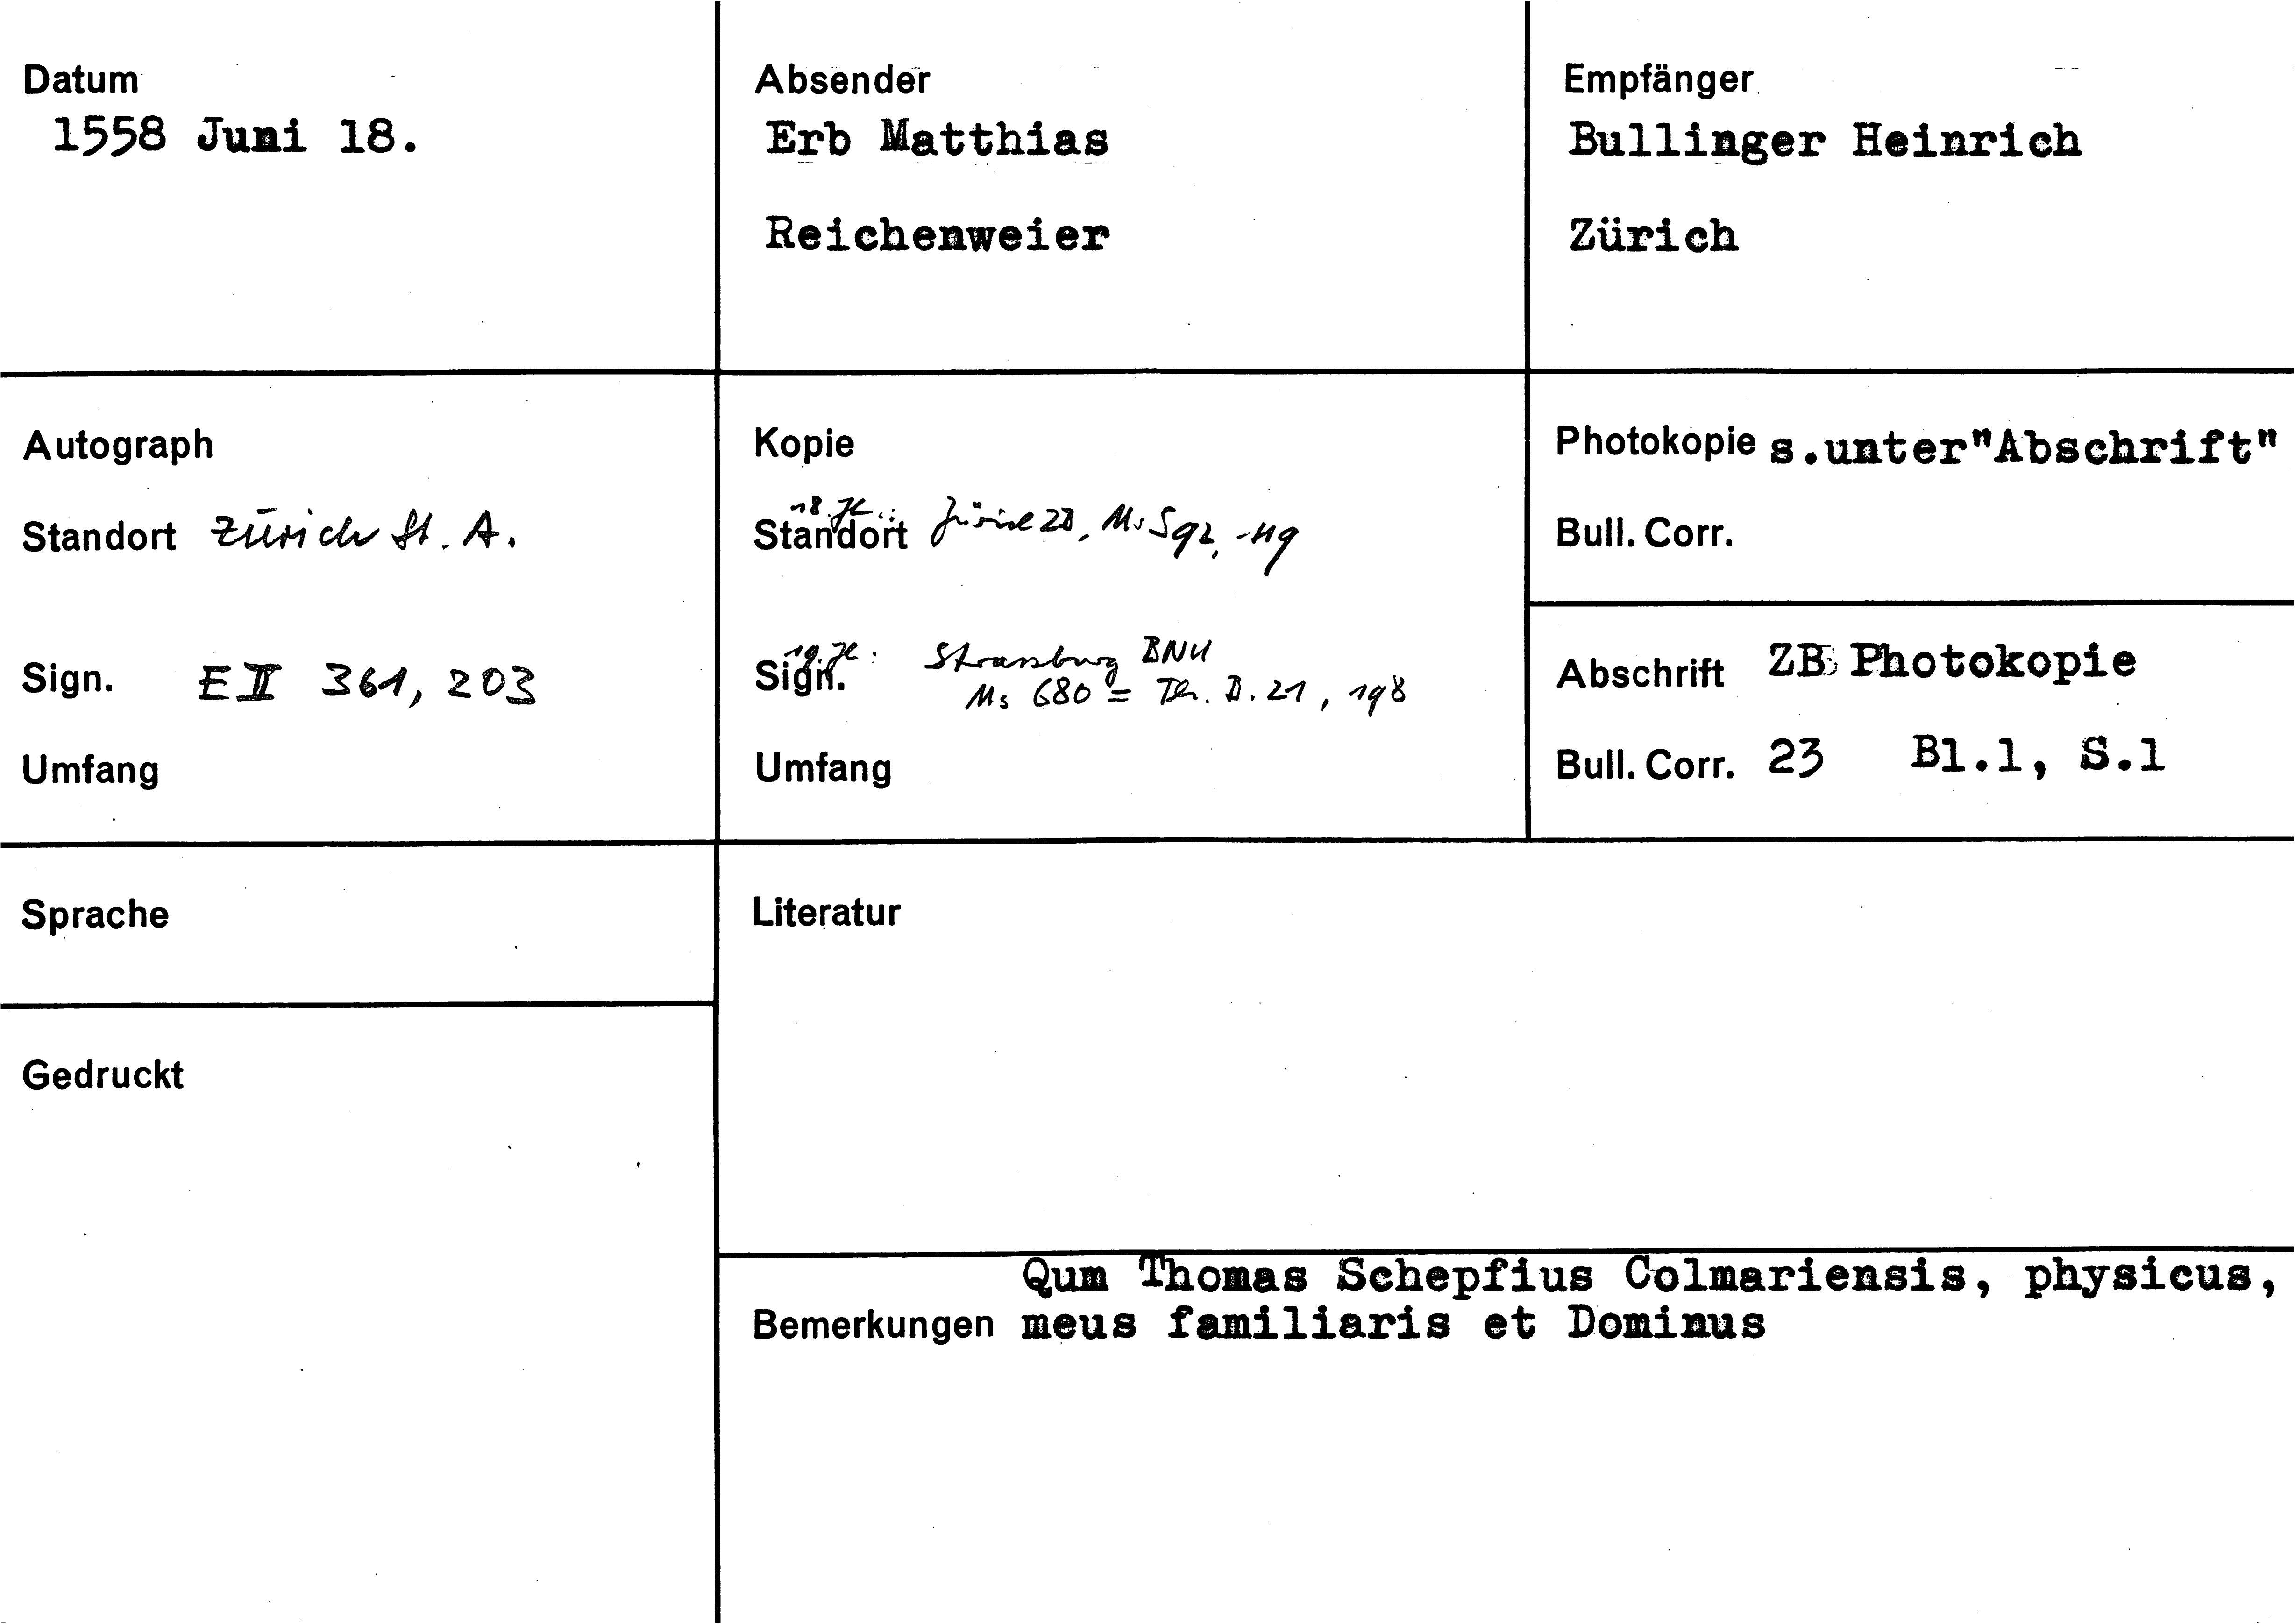 Datum
1558 Juni 18.
Absender
Erb Matthias
Reichenweier
Empfänger
Bullinger Heinrich
Zürich
Autograph
Standort Zürich St. A.
Sign. E II 361, 203
Umfang
Kopie
18. Jh.:
Standort Zürich ZB, Ms S 92, 119
19. Jh:
Sign. Strassburg BNU
Ms 680 = Th. B. 21, 198
Umfang
Photokopie s.unter"Abschrift"
Bull. Corr.
Abschrift ZB Photokopie
Bull. Corr. 23 Bl.1, S.1
Sprache
Gedruckt
Literatur
Qum Thomas Schepfius Colmariensis, physicus,
Bemerkungen meus familiaris et Dominus